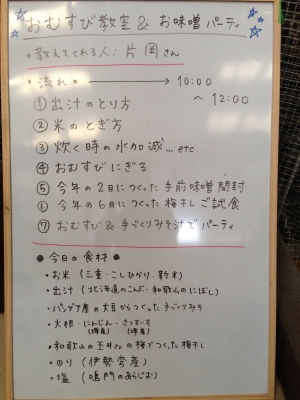 おむすび教室 & お味噌パーティ
・教えてくれる人：片岡さん
・流れ・ → 10:00
～ 12:00
① 出汁のとり方
② 米のとぎ方
③ 炊く時の水加減…etc.
④ おむすびにぎる
⑤ 今年の2月につくった手前味噌開封
⑥ 今年の6月につくった梅干しご試食
⑦ おむすび & 手づくりみそ汁でパーティ
● 今日の食材 ●
・お米（三重・こしひかり・新米）
・出汁（北海道のこんぶ・和歌山のにぼし）
・大豆からつくった手づくりみそ
・大根・にんじん・さつまいも
・和歌山の玉井さんの梅でつくった梅干し
・のり（伊勢湾産）
・塩（鳴門のあらじお）